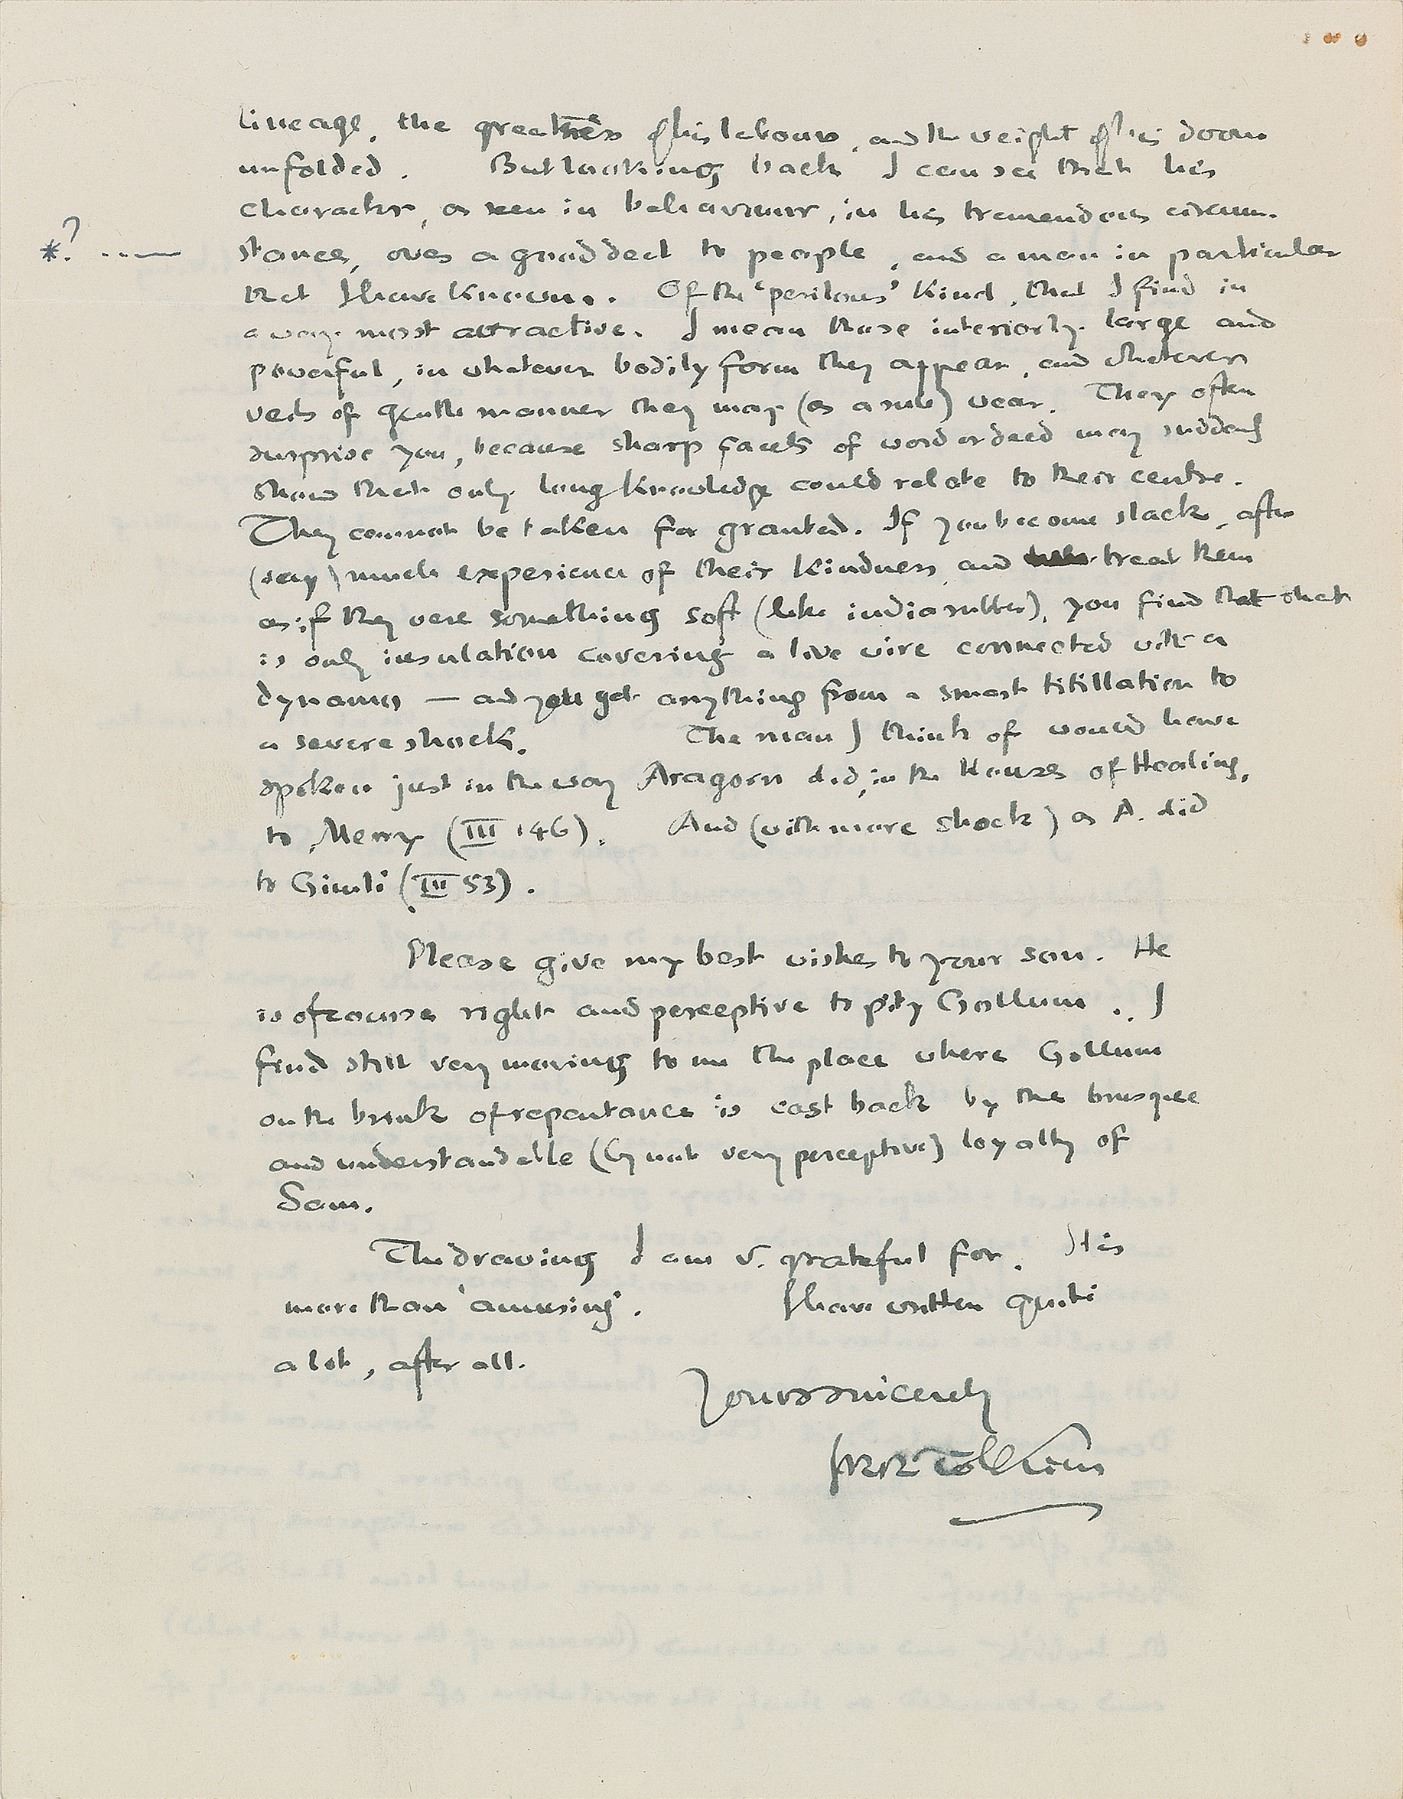 lineage, the greatness of his labour, and the weight of his doom
unfolded. But looking back I can see that his
character, as seen in behaviour, in his tremendous circum-
*? ..... stances, owes a good deal to people, and a man in particular
that I have known. Of the 'perilous' kind, that I find in
a way most attractive. I mean those interiorly large and
powerful, in whatever bodily form they appear, and whatever
veils of gentle manner they may (as a rule) wear. They often
surprise you, because sharp facets of word or deed may suddenly
show that only long knowledge could relate to their centre.
They cannot be taken for granted. If you become slack, after
(say) much experience of their kindness and treat them
as if they were something soft (like indiarubber), you find that that
is only insulation covering a live wire connected with a
dynamo — and you get anything from a smart titillation to
a severe shock. The man I think of would have
spoken just in the way Aragorn did, in the Houses of Healing,
to Merry (III 146). And (with more shock) as A. did
to Gimli (III 53).
Please give my best wishes to your son. He
is of course right and perceptive to pity Gollum. I
find still very moving to me the place where Gollum
on the brink of repentance is cast back by the brusque
and understandable (if not very perceptive) loyalty of
Sam.
The drawing I am v. grateful for. It is
more than 'amusing'. I have written quite
a lot, after all.
Yours sincerely
JRR Tolkien